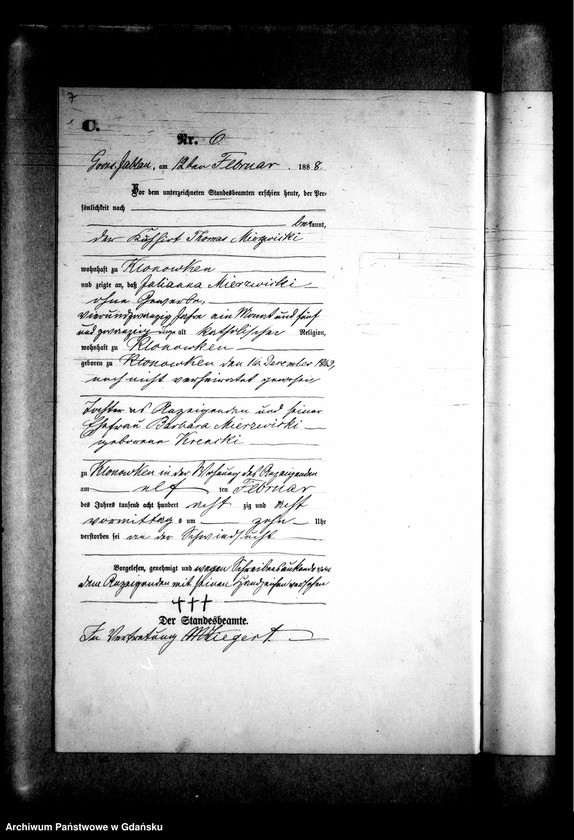 7
C.
Nr. 6
Gross Jablau, am 12ten Februar 1888.
Vor dem unterzeichneten Standesbeamten erschien heute, der Per-
sönlichkeit nach
bekannt,
der Kuhhirt Thomas Mierzwicki
wohnhaft zu Klonowken
und zeigte an, daß Julianna Mierzwicki
ohne Gewerbe,
vierundzwanzig Jahre ein Monat und fünf
und zwanzig Tage alt katholischer Religion,
wohnhaft zu Klonowken
geboren zu Klonowken den 16. Dezember 1863,
noch nicht verheiratet gewesen
Tochter des Anzeigenden und seiner
Ehefrau Barbara Mierzwicki
geborene
zu Klonowken in der Wohnung des Anzeigenden
am elf ten Februar
des Jahres tausend acht hundert acht zig und acht
vormittag s um zehn Uhr
verstorben sei an der Schwindsucht
Vorgelesen, genehmigt und wegen Schreibensunkunde von
dem Anzeigenden mit seinen Handzeichen versehen
+++
Der Standesbeamte.
In Vertretung
Archiwum Państwowe w Gdańsku